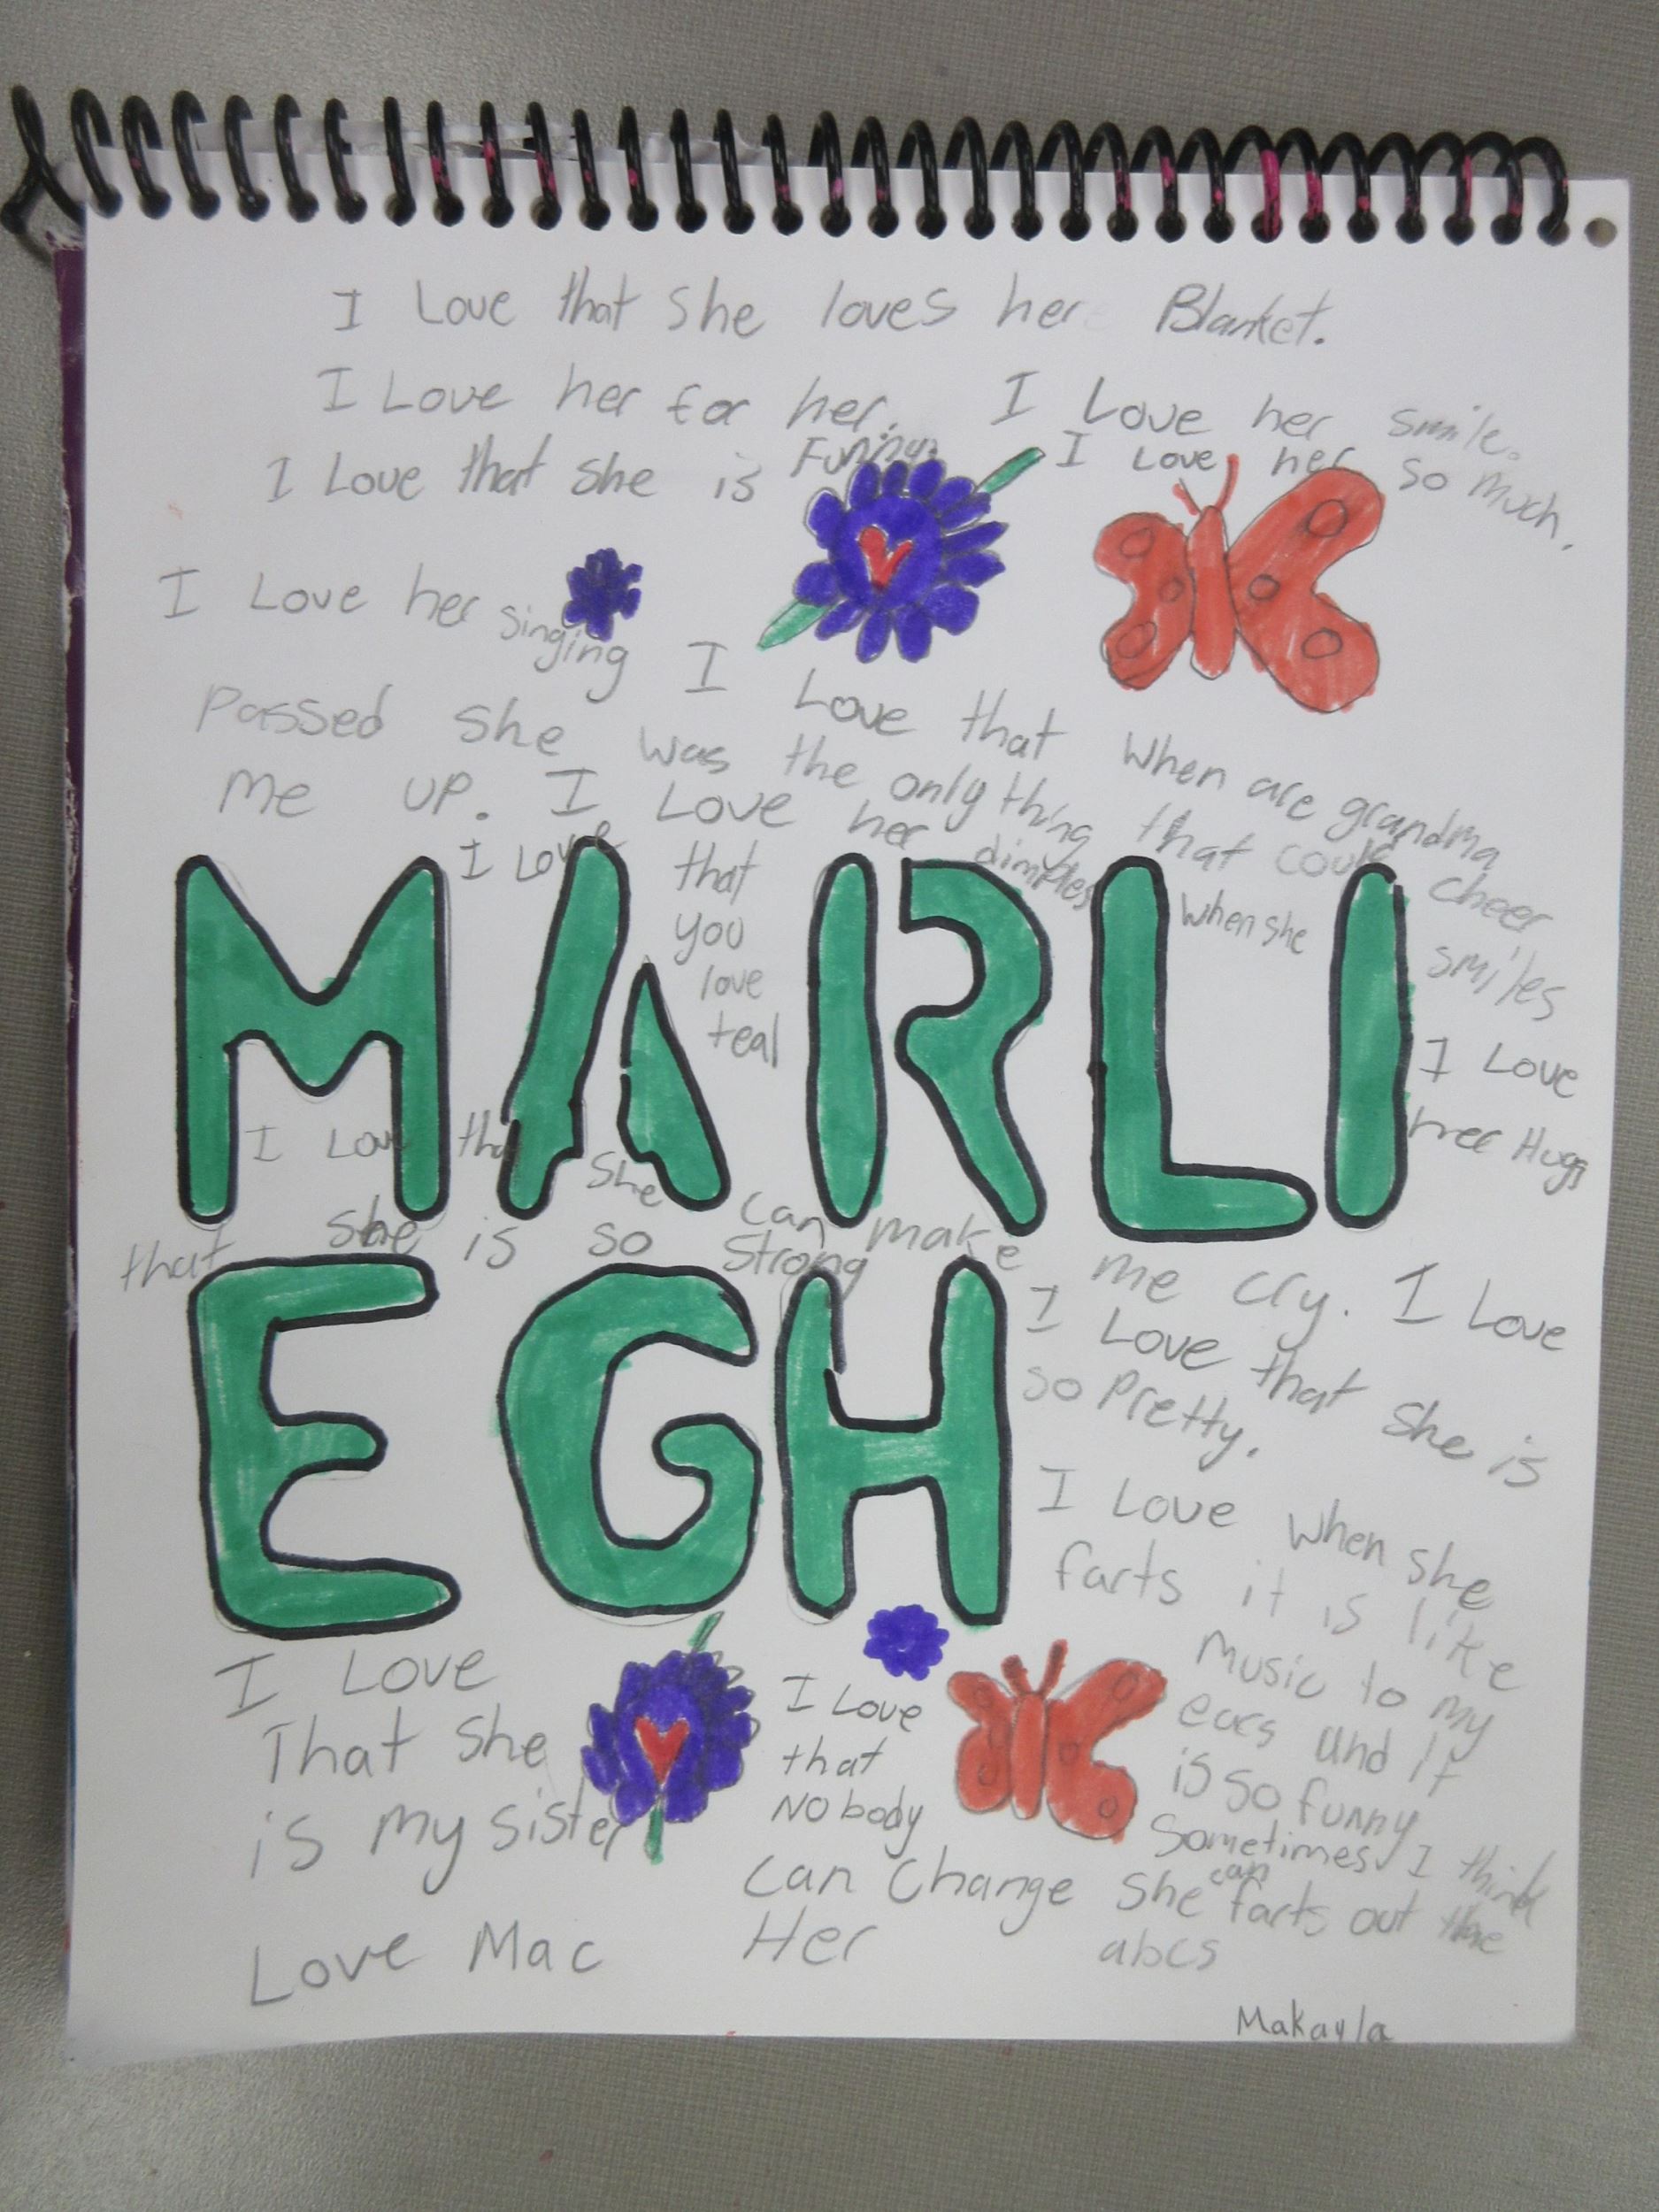 I Love that she loves her Blanket.
I Love her for her. I Love her smile.
I Love that she is Funny. I Love her so much.
I Love her singing
I Love that when are grandma
Passed she was the only thing that could cheer
me up. I Love her dimples when she smiles
I Love that you love teal
MARLI
I Love her Hugs
I Love that she can make me cry. I Love
that she is so strong
EGH
I Love that she is
so Pretty.
I Love when she
farts it is like
music to my
ears and it
is so funny
Sometimes I think
she can farts out the
abcs
I Love
That she
is my sister
I Love
that
Nobody
can change
Her
Love Mac
Makayla